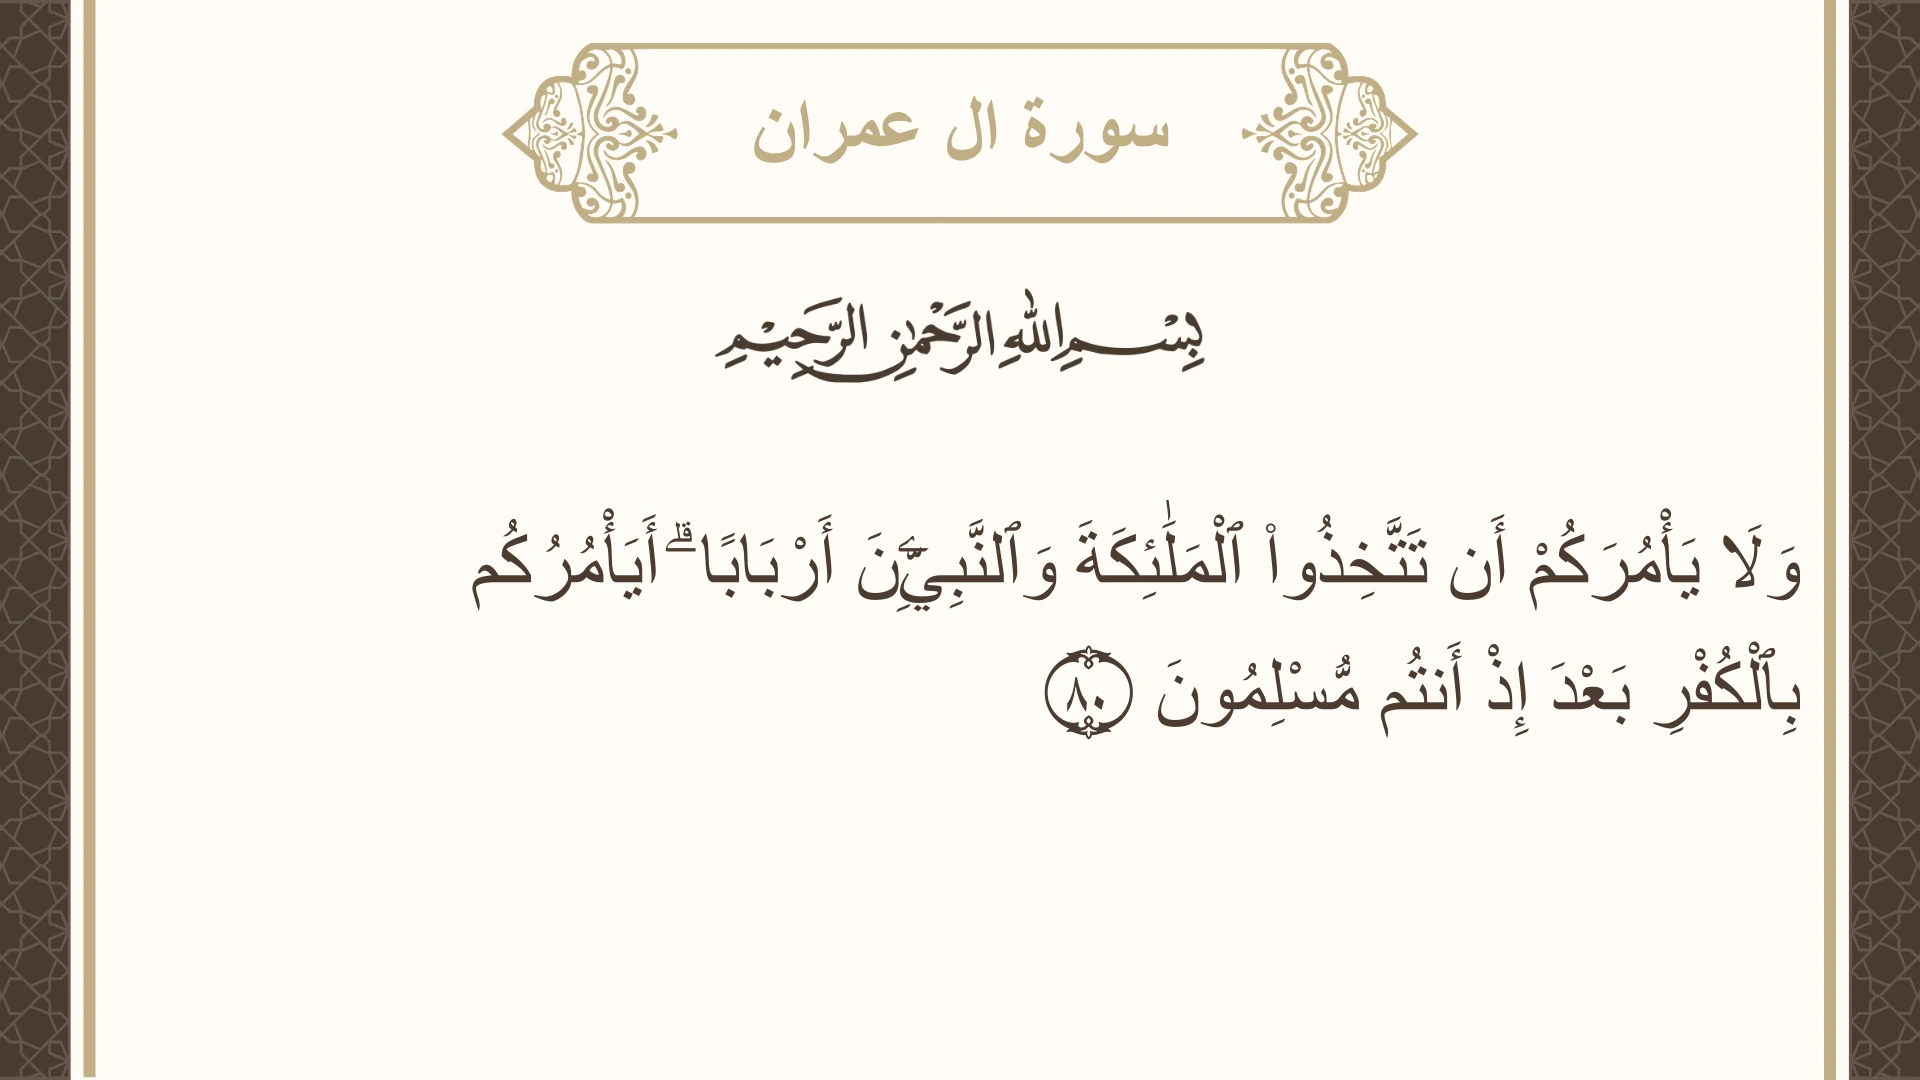 سورة ال عمران
بِسْمِ اللهِ الرَّحْمٰنِ الرَّحِيْمِ
وَلَا يَأْمُرَكُمْ أَن تَتَّخِذُوا۟ ٱلْمَلَٰٓئِكَةَ وَٱلنَّبِيِّۦنَ أَرْبَابًا ۗ أَيَأْمُرُكُم
بِٱلْكُفْرِ بَعْدَ إِذْ أَنتُم مُّسْلِمُونَ ٨٠